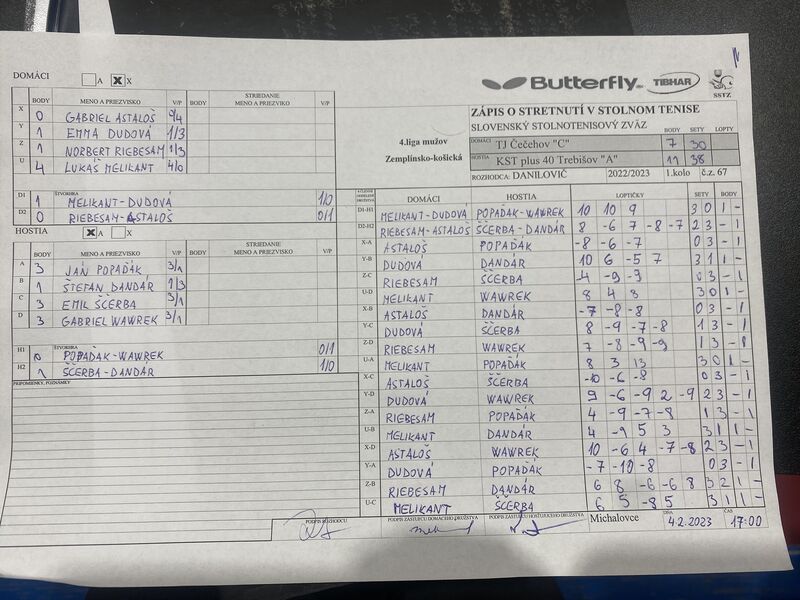 DOMÁCI A X X
Butterfly TIBHAR SSTZ
BODY MENO A PRIEZVISKO V/P BODY STRIEDANIE MENO A PRIEZVISKO V/P
X 0 GABRIEL ASTALOŠ 0/4
Y 1 EMMA DUDOVÁ 1/3
Z 1 NORBERT RIEBESAM 1/3
U 4 LUKÁŠ MELIKANT 4/0
ŠTVORHRA
D1 1 MELIKANT-DUDOVÁ 1/0
D2 0 RIEBESAM-ASTALOŠ 0/1
HOSTIA A X X
BODY MENO A PRIEZVISKO V/P BODY STRIEDANIE MENO A PRIEZVISKO V/P
A 3 JÁN POPAĎÁK 3/1
B 1 ŠTEFAN DANDÁR 1/3
C 3 EMIL ŠČERBA 3/1
D 3 GABRIEL WAWREK 3/1
ŠTVORHRA
H1 0 POPAĎÁK-WAWREK 0/1
H2 1 ŠČERBA-DANDÁR 1/0
PRIPOMIENKY, POZNÁMKY
4.liga mužov
Zemplínsko-košická
ZÁPIS O STRETNUTÍ V STOLNOM TENISE
SLOVENSKÝ STOLNOTENISOVÝ ZVÄZ BODY SETY LOPTY
DOMÁCI TJ Čečehov "C" 7 30
HOSTIA KST plus 40 Trebišov "A" 11 38
ROZHODCA: DANILOVIČ 2022/2023 1.kolo č.z. 67
DOMÁCI HOSTIA LOPTIČKY SETY BODY
D1-H1 MELIKANT-DUDOVÁ POPAĎÁK-WAWREK 10 10 9 3 0 1 -
D2-H2 RIEBESAM-ASTALOŠ ŠČERBA-DANDÁR 8 -6 7 -8 -7 2 3 - 1
X-A ASTALOŠ POPAĎÁK -8 -6 -7 0 3 - 1
Y-B DUDOVÁ DANDÁR 10 6 -5 7 3 1 1 -
Z-C RIEBESAM ŠČERBA -4 -9 -9 0 3 - 1
U-D MELIKANT WAWREK 8 4 8 3 0 1 -
X-B ASTALOŠ DANDÁR -7 -8 -8 0 3 - 1
Y-C DUDOVÁ ŠČERBA 8 -9 -7 -8 1 3 - 1
Z-D RIEBESAM WAWREK 7 -8 -9 -9 1 3 - 1
U-A MELIKANT POPAĎÁK 8 3 13 3 0 1 -
X-C ASTALOŠ ŠČERBA -10 -6 -8 0 3 - 1
Y-D DUDOVÁ WAWREK 9 -6 -9 2 -9 2 3 - 1
Z-A RIEBESAM POPAĎÁK 4 -9 -7 -8 1 3 - 1
U-B MELIKANT DANDÁR 4 -9 5 3 3 1 1 -
X-D ASTALOŠ WAWREK 10 -6 4 -7 -8 2 3 - 1
Y-A DUDOVÁ POPAĎÁK -7 -10 -8 0 3 - 1
Z-B RIEBESAM DANDÁR 6 8 -6 -6 8 3 2 1 -
U-C MELIKANT ŠČERBA 6 5 -8 5 3 1 1 -
PODPIS ROZHODCU PODPIS ZÁSTUPCU DOMÁCEHO DRUŽSTVA PODPIS ZÁSTUPCU HOSŤUJÚCEHO DRUŽSTVA Michalovce DŇA 4.2.2023 ČAS 17:00